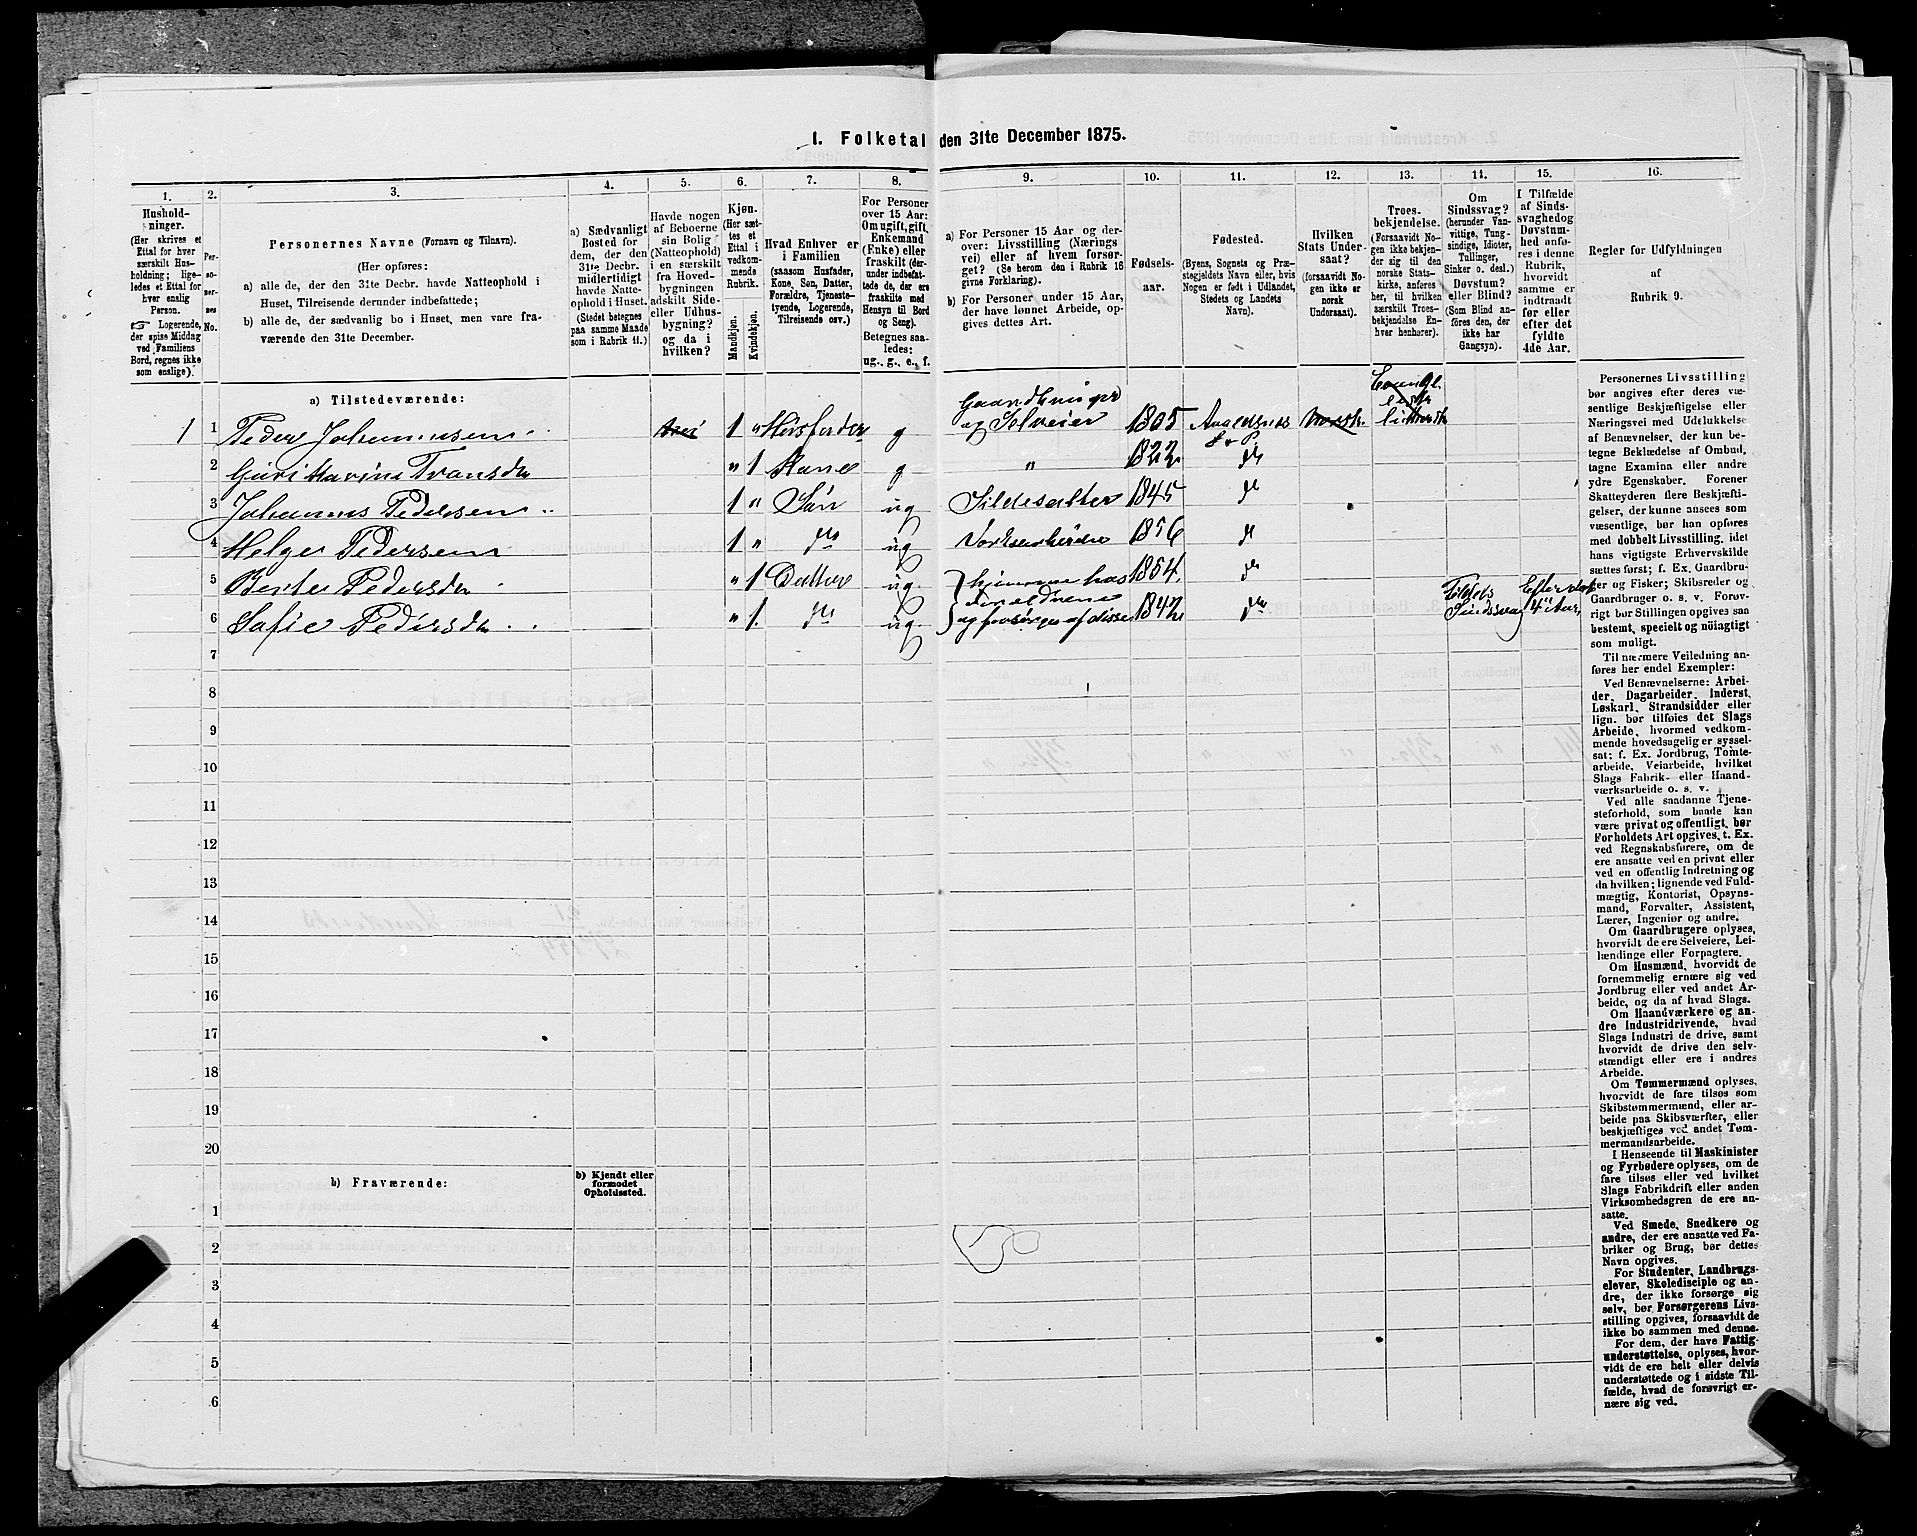 1. Folketal den 31te December 1875.
1. 2. 3. 4. 5. 6. 7. 8. 9. 10. 11. 12. 13. 14. 15. 16.
Hushold-
ninger.
(Her skrives et
Ettal for hver
særskilt Hus-
holdning; lige-
ledes et Ettal for
hver enslig
Person.
☞ Logerende,
der spise Middag
ved Familiens
Bord, regnes ikke
som enslige).
Per-
so-
ner-
nes
No.
Personernes Navne (Fornavn og Tilnavn).
(Her opføres:
a) alle de, der den 31te Decbr. havde Natteophold i
Huset, Tilreisende derunder indbefattede;
b) alle de, der sædvanlig bo i Huset, men vare fra-
værende den 31te December.
a) Sædvanligt
Bosted for
dem, der den
31te Decbr.
midlertidigt
havde Natte-
ophold i Huset.
(Stedet betegnes
paa samme Maade
som i Rubrik 11.)
Havde nogen
af Beboerne
sin Bolig
(Natteophold)
i en særskilt
fra Hoved-
bygningen
adskilt Side-
eller Udhus-
bygning?
og da i
hvilken?
Kjøn.
(Her sæt-
tes et
Ettal i
vedkom-
mende
Rubrik.
Mandkjøn.
Kvindekjøn.
Hvad Enhver er
i Familien
(saasom Husfader,
Kone, Søn, Datter,
Forældre, Tjeneste-
tyende, Logerende,
Tilreisende osv.)
For Personer
over 15 Aar:
Om ugift, gift,
Enkemand
(Enke) eller
fraskilt (der-
under indbefat-
tede de, der ere
fraskilte med
Hensyn til Bord
og Seng).
Betegnes saa-
ledes:
ug., g., e., f.
a) For Personer 15 Aar og der-
over: Livsstilling (Nærings
vei) eller af hvem forsør-
get? (Se herom den i Rubrik 16
givne Forklaring).
b) For Personer under 15 Aar,
der have lønnet Arbeide, op-
gives dettes Art.
Fødsels-
aar.
Fødested.
(Byens, Sognets og Præ-
stegjeldets Navn eller, hvis
Nogen er født i Udlandet,
Stedets og Landets
Navn).
Hvilken
Stats Under-
saat?
(forsaavidt No-
gen ikke er
norsk
Undersaat).
Troes-
bekjendelse.
(Forsaavidt No-
gen ikke bekjen-
der sig til den
norske Stats-
kirke, anføres
her, til hvilken
særskilt Troes-
bekjendelse En-
hver henhører).
Om
Sindssvag?
(herunder Van-
vittige, Tung-
sindige, Idioter,
Tullinger,
Sinker o. desl.)
Døvstum?
eller Blind?
(Som Blind an-
føres den, der
ikke har
Gangsyn).
I Tilfælde
af Sinds-
svaghed og
Døvstum-
hed anfø-
res i denne
Rubrik,
hvorvidt
samme er
indtraadt
før eller
efter det
fyldte
4de Aar.
Regler for Udfyldningen
af
Rubrik 9.
a) Tilstedeværende:
1 1 Peder Johannesen nei 1 " Husfader g Gaardbruger og Selveier 1805 Avaldsnes S & P. norsk Evangelisk luthersk
2 Guri Marine Transdtr " 1 Kone g " 1822 do
3 Johannes Pedersen 1 " Søn ug Sildesalter 1845 do
4 Helge Pedersen 1 " do ug 1856 do
5 Berte Pedersdtr " 1 Datter ug. hjemme hos 1854 do
6 Sofie Pedersdtr " 1 do ug. Forældrene og forsørges af disse 1842 do Tildels Sindssvag Efter det 4de Aar,
7
8
9
10
11
12
13
14
15
16
17
18
19
20
b) Fraværende:
b) Kjendt eller
formodet
Opholdssted.
1
2
3
4
5
6
Personernes Livsstilling
bør angives efter deres væ-
sentlige Beskjæftigelse eller
Næringsvei med Udelukkelse
af Benævnelser, der kun be-
tegne Beklædelse af Ombud,
tagne Examina eller andre
ydre Egenskaber. Forener
Skatteyderen flere Beskjæfti-
gelser, der kunne ansees som
væsentlige, bør han opføres
med dobbelt Livsstilling, idet
hans vigtigste Erhvervskilde
sættes først; f. Ex. Gaardbru-
ger og Fisker; Skibsreder og
Gaardbruger o. s. v. Forøv-
rigt bør Stillingen opgives saa
bestemt, specielt og nøiagtigt
som muligt.
Til nærmere Veiledning an-
føres her endel Exempler:
Ved Benævnelserne: Arbei-
der, Dagarbeider, Inderst,
Løskarl, Strandsidder eller
lign. bør tilføies det Slags
Arbeide, hvormed vedkom-
mende hovedsagelig er syssel-
sat; f. Ex. Jordbrug, Tomte-
arbeide, Veiarbeide, hvilket
Slags Fabrik- eller Haand-
værksarbeide o. s. v.
Ved alle saadanne Tjene-
steforhold, som baade kan
være privat og offentligt, bør
Forholdets Art opgives, t. Ex.
ved Regnskabsførere, om de
ere ansatte ved en privat eller
ved en offentlig Indretning og
da hvilken; lignende ved Fuld-
mægtig, Kontorist, Opsyns-
mand, Forvalter, Assistent,
Lærer, Ingeniør og andre.
Om Gaardbrugere oplyses,
hvorvidt de ere Selveiere, Lei-
lændinge eller Forpagtere.
Om Husmænd, hvorvidt de
fornemmelig ernære sig ved
Jordbrug eller ved andet Ar-
beide, og da af hvad Slags.
Om Haandværkere og an-
dre Industridrivende, hvad
Slags Industri de drive, samt
hvorvidt de drive den selv-
stændigt eller ere i andres
Arbeide.
Om Tømmermænd oplyses,
hvorvidt de fare tilsøs som
Skibstømmermænd, eller ar-
beide paa Skibsværfter, eller
beskjæftiges ved andet Tøm-
mermandsarbeide.
I Henseende til Maskinister
og Fyrbødere oplyses, om de
fare tilsøs eller ved hvilket
Slags Fabrikdrift eller anden
Virksomhedsgren de ere an-
satte.
Ved Smede, Snedkere og
andre, der ere ansatte ved Fa-
briker og Brug, bør dettes
Navn opgives.
For Studenter, Landbrugs-
elever, Skoledisciple og an-
dre, der ikke forsørge sig
selv, bør Forsørgerens Livs-
stilling opgives, forsaavidt de
ikke bo sammen med denne.
For dem, der have Fattig-
understøttelse, oplyses, hvor-
vidt de ere helt eller delvis
understøttede og i sidste Til-
fælde, hvad de forøvrigt er-
nære sig ved.